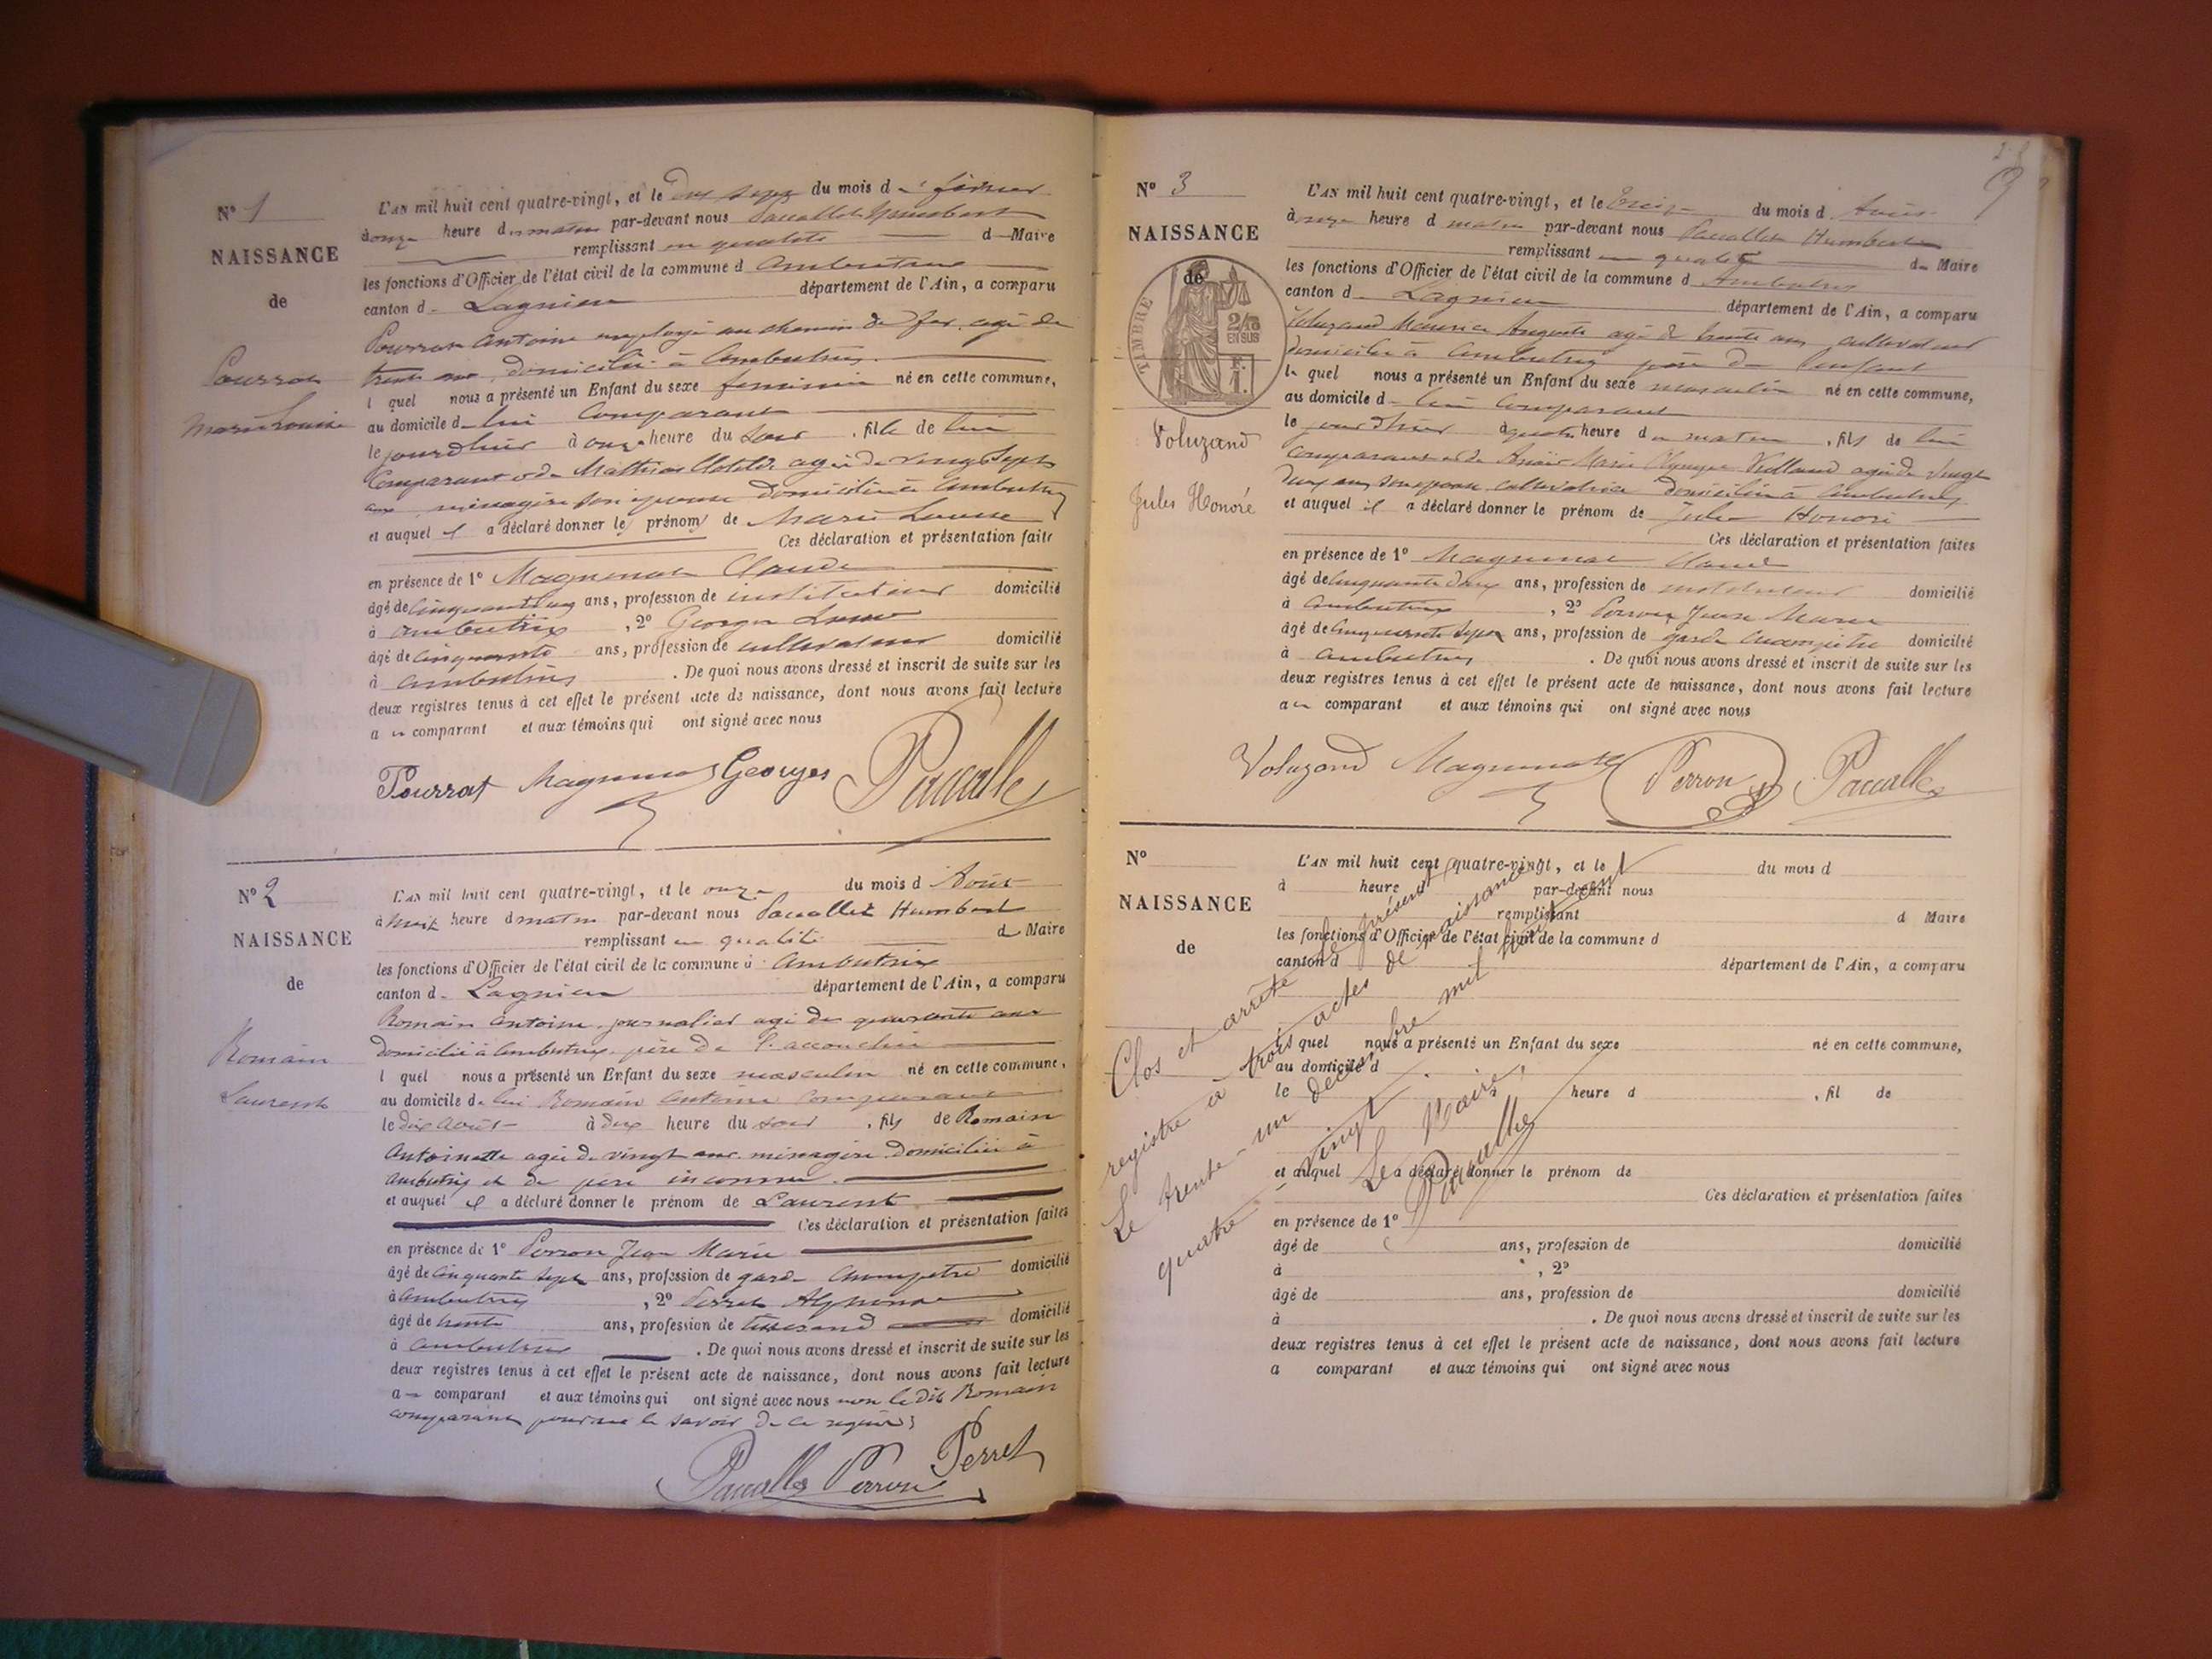 N° 1
NAISSANCE
de
Pourrat
Marie Louise
L'AN mil huit cent quatre-vingt, et le dix sept du mois de février
à onze heure du matin par-devant nous Paccallet Humbert
remplissant en qualité d Maire
les fonctions d'Officier de l'état civil de la commune d Ambutrix
canton d Lagnieu département de l'Ain, a comparu
Pourrat Antoine employé au chemin de fer agé de
trente ans, domicilié à Ambutrix
l quel nous a présenté un Enfant du sexe feminin né en cette commune,
au domicile d lui comparant
le jour d'hier à onze heure du soir , fille de lui
comparant et de Mathias Clotilde agée de vingt sept
ans ménagère son épouse domiciliée à Ambutrix
et auquel il a déclaré donner le prénom de Marie Louise
Ces déclaration et présentation faite
en présence de 1° Magnenat Claude
âgé de cinquante ans, profession de instituteur domicilié
à Ambutrix , 2° Georges
âgé de cinquante ans, profession de cultivateur domicilié
à Ambutrix . De quoi nous avons dressé et inscrit de suite sur les
deux registres tenus à cet effet le présent acte de naissance, dont nous avons fait lecture
a u comparant et aux témoins qui ont signé avec nous
Pourrat Magnenat Georges Paccallet
N° 2
NAISSANCE
de
Romain
Laurent
L'AN mil huit cent quatre-vingt, et le onze du mois d Août
à huit heure d matin par-devant nous Paccallet Humbert
remplissant en qualité d Maire
les fonctions d'Officier de l'état civil de la commune d Ambutrix
canton d Lagnieu département de l'Ain, a comparu
Romain Antoine journalier agé de quarante ans
domicilié à Ambutrix père de l'accouchée
l quel nous a présenté un Enfant du sexe masculin né en cette commune,
au domicile de lui Romain Antoine comparant
le dix Août à dix heure du soir , fils de Romain
Antoinette agée de vingt ans ménagère domiciliée à
Ambutrix et de père inconnu
et auquel il a déclaré donner le prénom de Laurent
Ces déclaration et présentation faites
en présence de 1° Perron Jean Marie
âgé de cinquante sept ans, profession de garde champetre domicilié
à Ambutrix , 2° Perret Alphonse
âgé de trente ans, profession de tisserand domicilié
à Ambutrix . De quoi nous avons dressé et inscrit de suite sur les
deux registres tenus à cet effet le présent acte de naissance, dont nous avons fait lecture
a u comparant et aux témoins qui ont signé avec nous non le dit Romain
comparant pour ne le savoir de ce requis
Paccallet Perron Perret
N° 3
NAISSANCE
de
TIMBRE
2/10
EN SUS
F.
1.
Voluzand
Jules Honoré
L'AN mil huit cent quatre-vingt, et le treize du mois d Août
à onze heure d matin par-devant nous Paccallet Humbert
remplissant en qualité d Maire
les fonctions d'Officier de l'état civil de la commune d Ambutrix
canton d Lagnieu département de l'Ain, a comparu
Voluzand Maurice Auguste agé de trente ans cultivateur
domicilié à Ambutrix père de l'enfant
le quel nous a présenté un Enfant du sexe masculin né en cette commune,
au domicile d lui comparant
le jour d'hier à quatre heure du matin , fils de lui
comparant et de Marie Olympe agée de vingt
deux ans son épouse cultivatrice domiciliée à Ambutrix
et auquel il a déclaré donner le prénom de Jules Honoré
Ces déclaration et présentation faites
en présence de 1° Magnenat Claude
âgé de cinquante deux ans, profession de instituteur domicilié
à Ambutrix , 2° Perron Jean Marie
âgé de cinquante sept ans, profession de garde champetre domicilié
à Ambutrix . De quoi nous avons dressé et inscrit de suite sur les
deux registres tenus à cet effet le présent acte de naissance, dont nous avons fait lecture
a u comparant et aux témoins qui ont signé avec nous
Voluzand Magnenat Perron Paccallet
N°
NAISSANCE
de
L'AN mil huit cent quatre-vingt, et le du mois d
à heure par-devant nous
remplissant d Maire
les fonctions d'Officier de l'état civil de la commune d
canton d département de l'Ain, a comparu
l quel nous a présenté un Enfant du sexe né en cette commune,
au domicile d
le heure d , fil de
et auquel a déclaré donner le prénom de
Ces déclaration et présentation faites
en présence de 1°
âgé de ans, profession de domicilié
à , 2°
âgé de ans, profession de domicilié
à . De quoi nous avons dressé et inscrit de suite sur les
deux registres tenus à cet effet le présent acte de naissance, dont nous avons fait lecture
a comparant et aux témoins qui ont signé avec nous
Clos et arrêté le présent
registre à trois actes de naissance
Le trente-un decembre mil huit cent
quatre-vingt.
Le Maire,
Paccallet